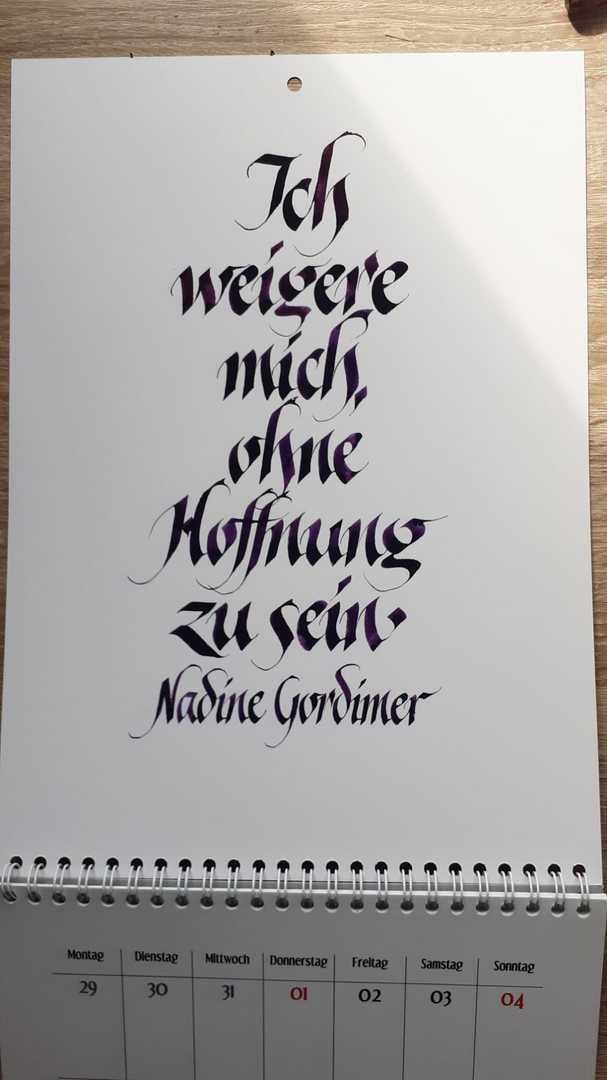 Ich
weigere
mich,
ohne
Hoffnung
zu sein.
Nadine Gordimer
Montag Dienstag Mittwoch Donnerstag Freitag Samstag Sonntag
29 30 31 01 02 03 04